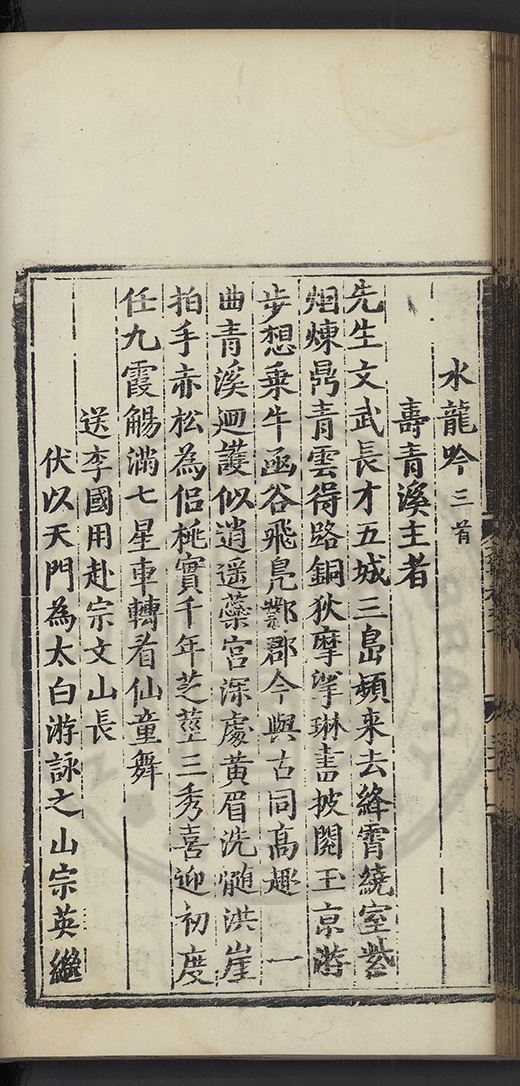 水龍吟三首
壽青溪主者
先生文武長才五城三島頻來去絳霄繞室紫
烟煉鼎青雲得路銅狄摩挲琳書披閱玉京游
步想乘牛函谷飛鳧鄴郡今與古同高趣 一
曲青溪迴護似逍遥蘂宮深處黄眉洗髓洪崖
拍手赤松為侣桃實千年芝莖三秀喜迎初度
任九霞觴滿七星車轉看仙童舞
送李國用赴宗文山長
伏以天門為太白游詠之山宗英繼